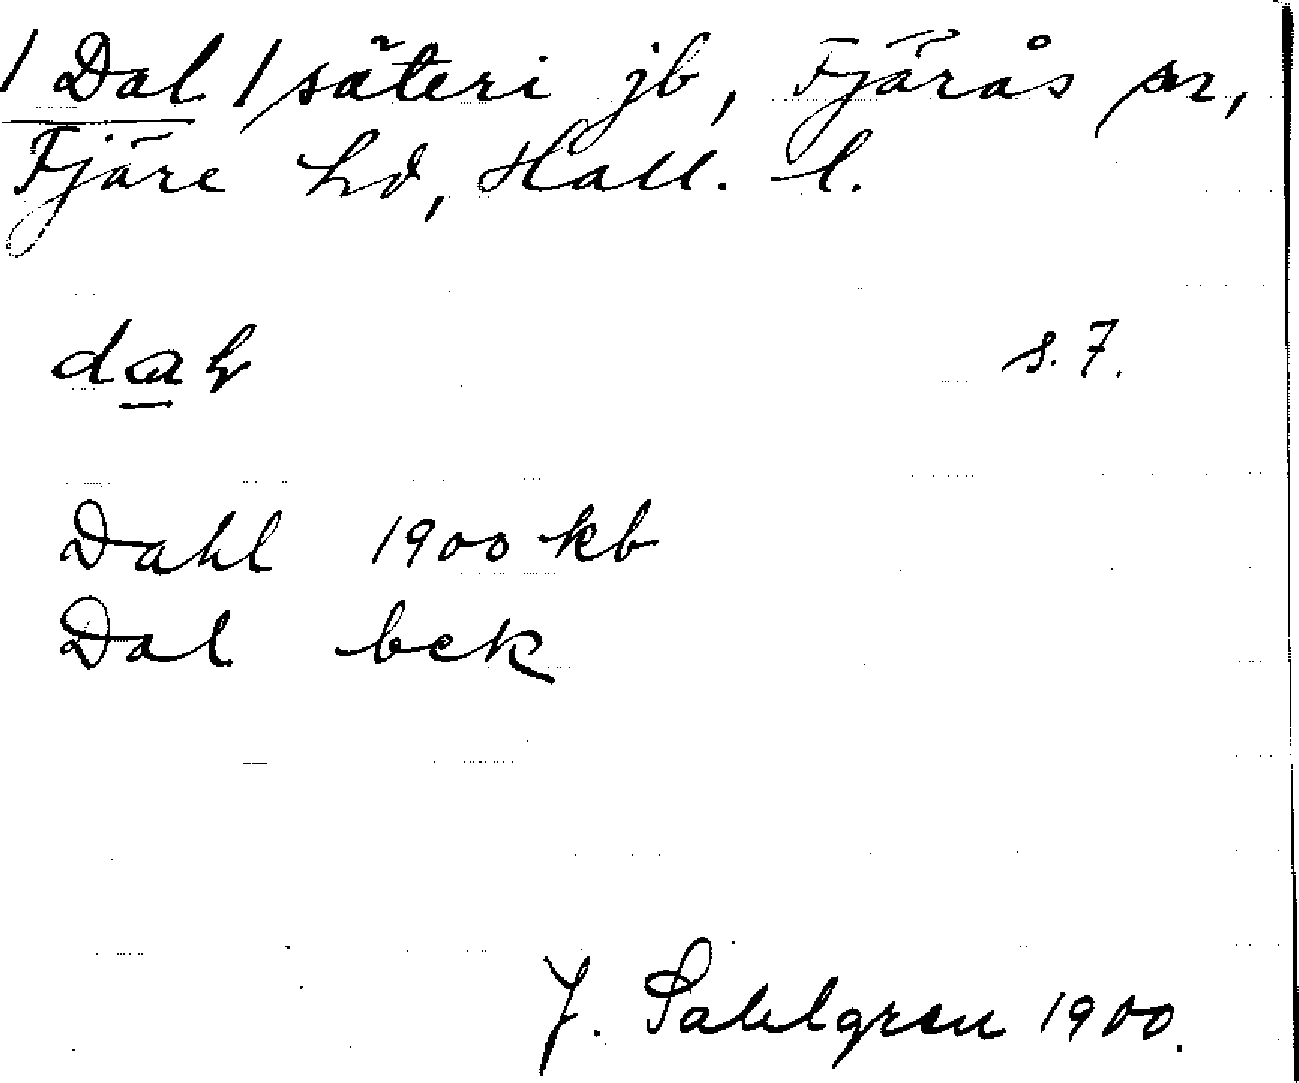 / Dal / säteri jb, Fjärås sn,
Fjäre hd, Hall. l.
dal s. 7.
Dahl 1900 kb
Dal bek
J. Sahlgren 1900.